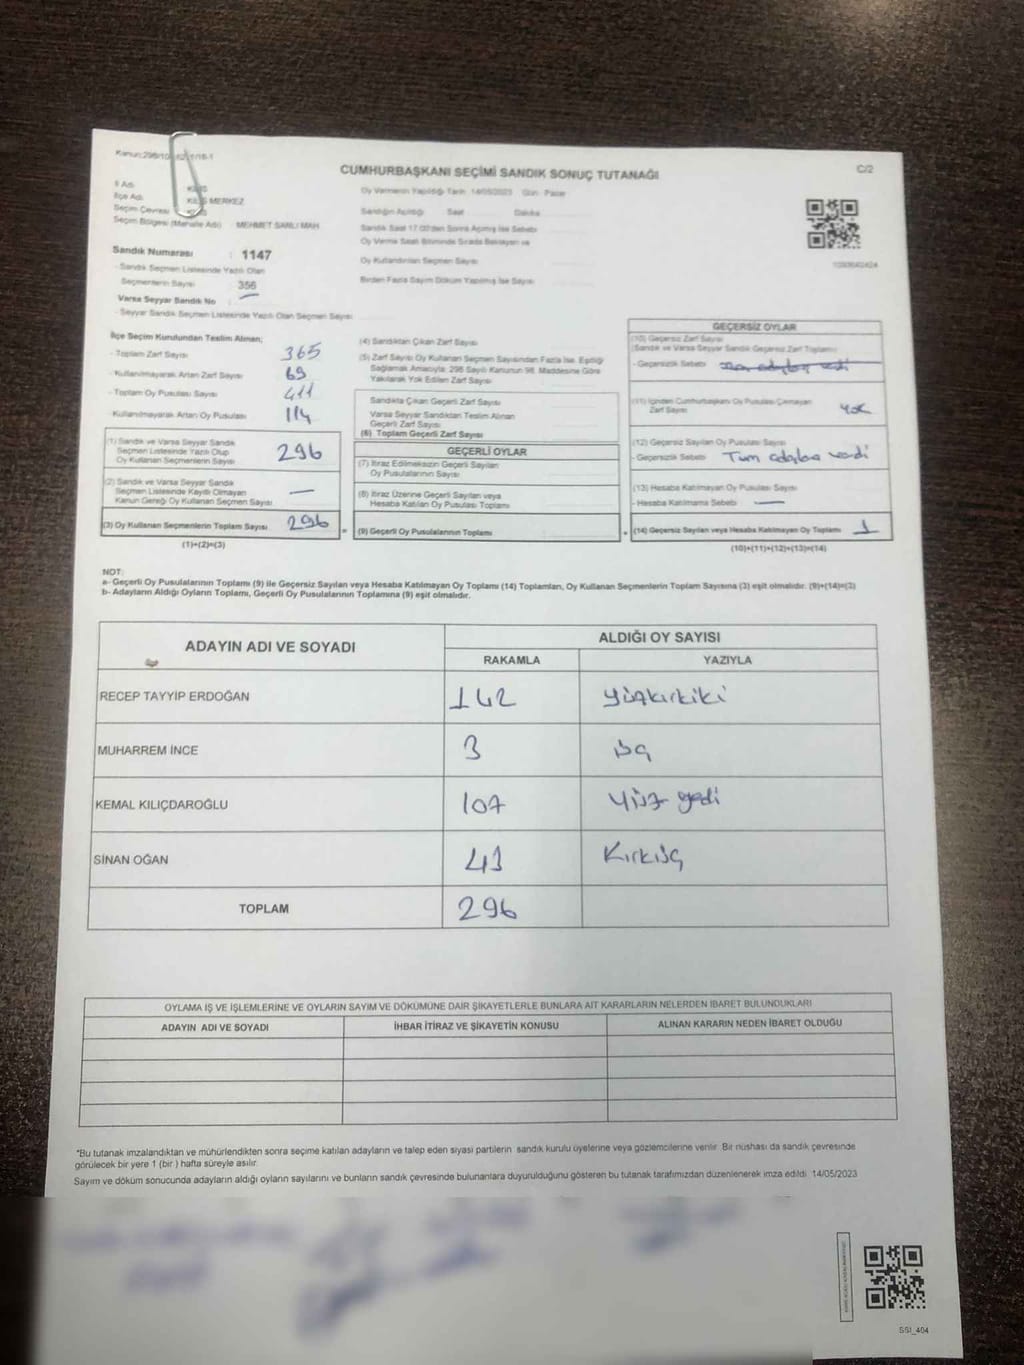 Kanun:298/10
C/2
CUMHURBAŞKANI SEÇİMİ SANDIK SONUÇ TUTANAĞI
İl Adı
İlçe Adı KİLİS MERKEZ
Seçim Çevresi
Seçim Bölgesi (Mahalle Adı) : MEHMET SANLI MAH
Sandık Numarası : 1147
- Sandık Seçmen Listesinde Yazılı Olan
Seçmenlerin Sayısı : 356
Varsa Seyyar Sandık No : —
- Seyyar Sandık Seçmen Listesinde Yazılı Olan Seçmen Sayısı :
Oy Vermenin Yapıldığı Tarih 14/05/2023 Gün: Pazar
Sandığın Açıldığı Saat Dakika
Sandık Saat 17.00'den Sonra Açılmış İse Sebebi
Oy Verme Saati Bitiminde Sırada Bekleyen ve
Oy Kullandırılan Seçmen Sayısı
Birden Fazla Sayım Döküm Yapılmış İse Sayısı
İlçe Seçim Kurulundan Teslim Alınan;
- Toplam Zarf Sayısı 365
- Kullanılmayarak Artan Zarf Sayısı 69
- Toplam Oy Pusulası Sayısı 411
- Kullanılmayarak Artan Oy Pusulası 114
(1) Sandık ve Varsa Seyyar Sandık
Seçmen Listesinde Yazılı Olup
Oy Kullanan Seçmenlerin Sayısı 296
(2) Sandık ve Varsa Seyyar Sandık
Seçmen Listesinde Kayıtlı Olmayan
Kanun Gereği Oy Kullanan Seçmen Sayısı —
(3) Oy Kullanan Seçmenlerin Toplam Sayısı 296 =
(1)+(2)=(3)
(4) Sandıktan Çıkan Zarf Sayısı
(5) Zarf Sayısı Oy Kullanan Seçmen Sayısından Fazla İse, Eşitliği
Sağlamak Amacıyla; 298 Sayılı Kanunun 98. Maddesine Göre
Yakılarak Yok Edilen Zarf Sayısı
Sandıkta Çıkan Geçerli Zarf Sayısı
Varsa Seyyar Sandıktan Teslim Alınan
Geçerli Zarf Sayısı
(6) Toplam Geçerli Zarf Sayısı
GEÇERLİ OYLAR
(7) İtiraz Edilmeksizin Geçerli Sayılan
Oy Pusulalarının Sayısı
(8) İtiraz Üzerine Geçerli Sayılan veya
Hesaba Katılan Oy Pusulası Toplamı
(9) Geçerli Oy Pusulalarının Toplamı +
GEÇERSİZ OYLAR
(10) Geçersiz Zarf Sayısı
(Sandık ve Varsa Seyyar Sandık Geçersiz Zarf Toplamı)
- Geçersizlik Sebebi
(11) İçinden Cumhurbaşkanı Oy Pusulası Çıkmayan
Zarf Sayısı Yok
(12) Geçersiz Sayılan Oy Pusulası Sayısı
- Geçersizlik Sebebi Tüm adaylara verdi
(13) Hesaba Katılmayan Oy Pusulası Sayısı
- Hesaba Katılmama Sebebi —
(14) Geçersiz Sayılan veya Hesaba Katılmayan Oy Toplamı 1
(10)+(11)+(12)+(13)=(14)
NOT:
a- Geçerli Oy Pusulalarının Toplamı (9) ile Geçersiz Sayılan veya Hesaba Katılmayan Oy Toplamı (14) Toplamları, Oy Kullanan Seçmenlerin Toplam Sayısına (3) eşit olmalıdır. (9)+(14)=(3)
b- Adayların Aldığı Oyların Toplamı, Geçerli Oy Pusulalarının Toplamına (9) eşit olmalıdır.
ADAYIN ADI VE SOYADI
ALDIĞI OY SAYISI
RAKAMLA YAZIYLA
RECEP TAYYİP ERDOĞAN 142 yüzkırkiki
MUHARREM İNCE 3 üç
KEMAL KILIÇDAROĞLU 107 Yüz yedi
SİNAN OĞAN 43 Kırküç
TOPLAM 296
OYLAMA İŞ VE İŞLEMLERİNE VE OYLARIN SAYIM VE DÖKÜMÜNE DAİR ŞİKAYETLERLE BUNLARA AİT KARARLARIN NELERDEN İBARET BULUNDUKLARI
ADAYIN ADI VE SOYADI İHBAR İTİRAZ VE ŞİKAYETİN KONUSU ALINAN KARARIN NEDEN İBARET OLDUĞU
*Bu tutanak imzalandıktan ve mühürlendikten sonra seçime katılan adayların ve talep eden siyasi partilerin sandık kurulu üyelerine veya gözlemcilerine verilir. Bir nüshası da sandık çevresinde
görülecek bir yere 1 (bir ) hafta süreyle asılır.
Sayım ve döküm sonucunda adayların aldığı oyların sayılarını ve bunların sandık çevresinde bulunanlara duyurulduğunu gösteren bu tutanak tarafımızdan düzenlenerek imza edildi. 14/05/2023
SSI_404